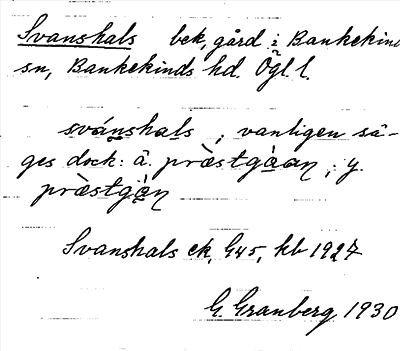 Svanshals bek, gård i Bankekind
sn, Bankekinds hd. Ögl. l.
svánshals ; vanligen sä-
ges dock: ä. prèstgàan ; y.
prèstgàn
Svanshals ek, G45, kb 1927
G Granberg 1930